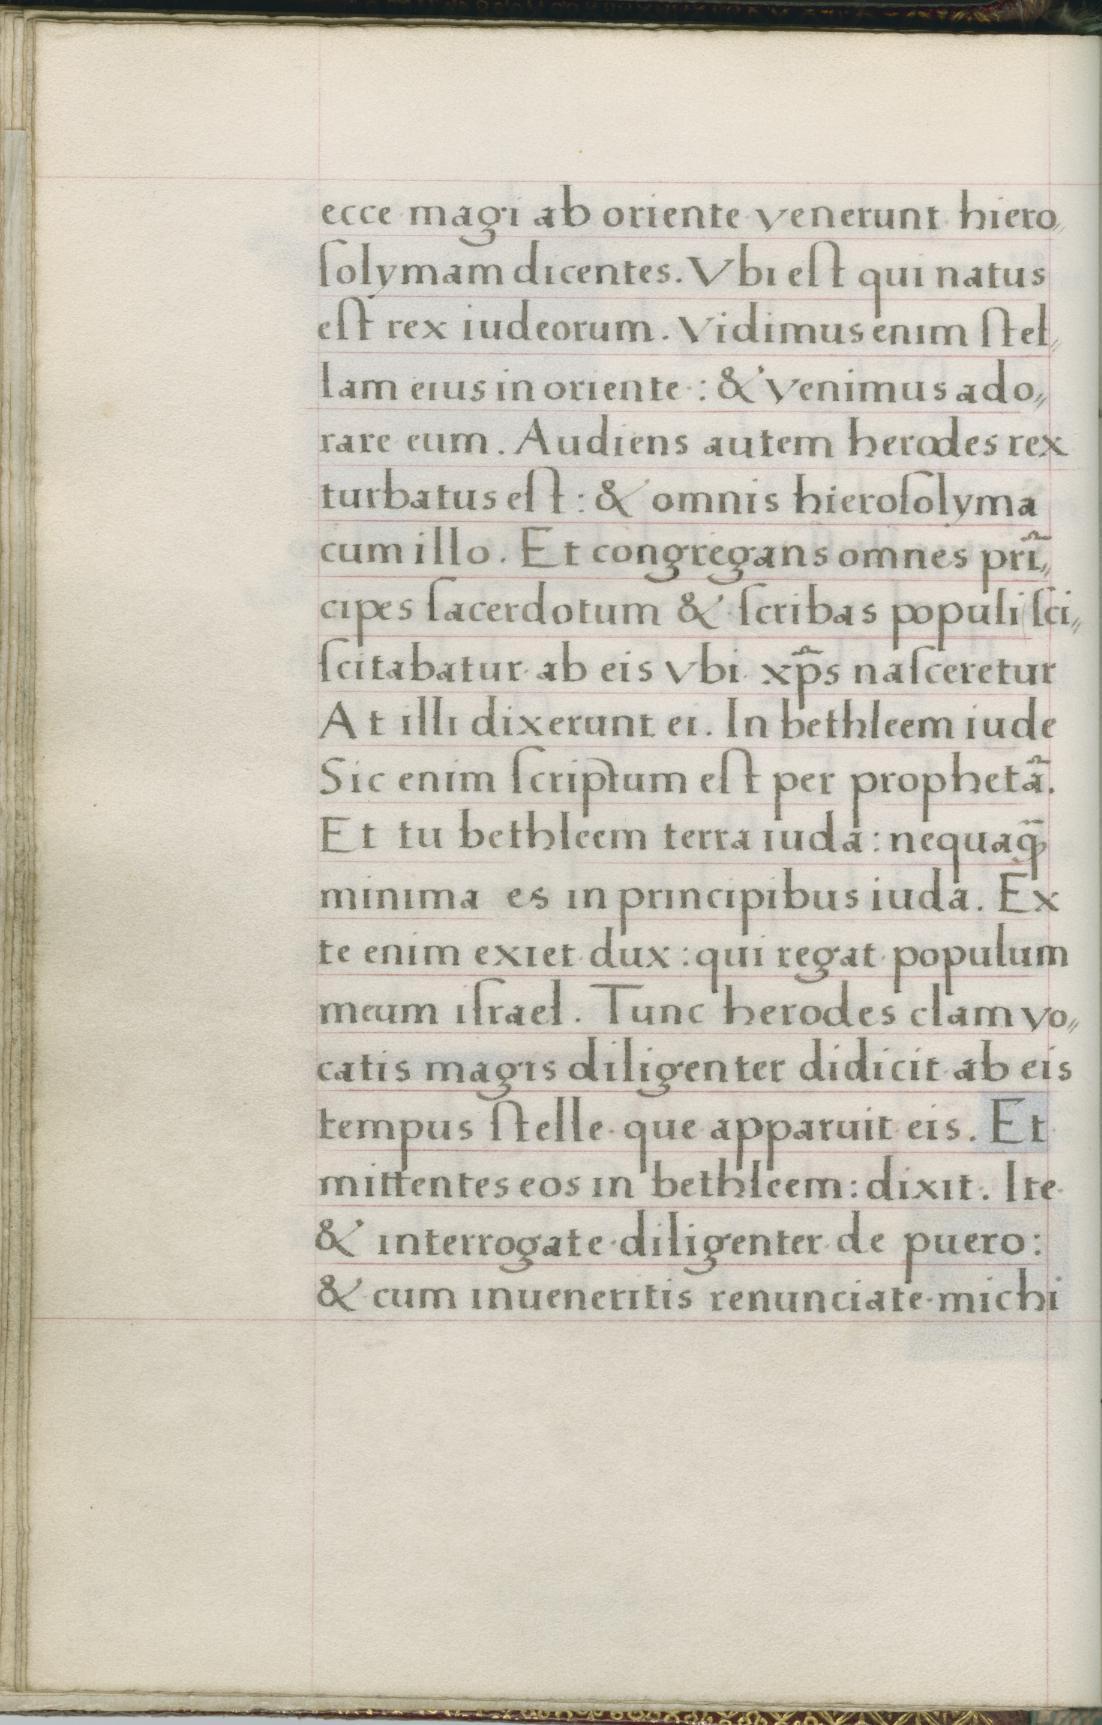 ecce magi ab oriente venerunt hiero„
ſolymam dicentes. Vbi eſt qui natus
eſt rex iudeorum. Vidimus enim ſtel„
lam eius in oriente : & venimus ado„
rare eum. Audiens autem herodes rex
turbatus eſt : & omnis hieroſolyma
cum illo. Et congregans omnes prĩ„
cipes ſacerdotum & ſcribas populi ſci„
ſcitabatur ab eis vbi xp̃s naſceretur
At illi dixerunt ei. In bethleem iude
Sic enim ſcriptum eſt per prophetã.
Et tu bethleem terra iuda : nequaq̃
minima es in principibus iuda. Ex
te enim exiet dux : qui regat populum
meum iſrael. Tunc herodes clam vo„
catis magis diligenter didicit ab eis
tempus ſtelle que apparuit eis. Et
mittentes eos in bethleem : dixit. Ite
& interrogate diligenter de puero :
& cum inueneritis renunciate michi